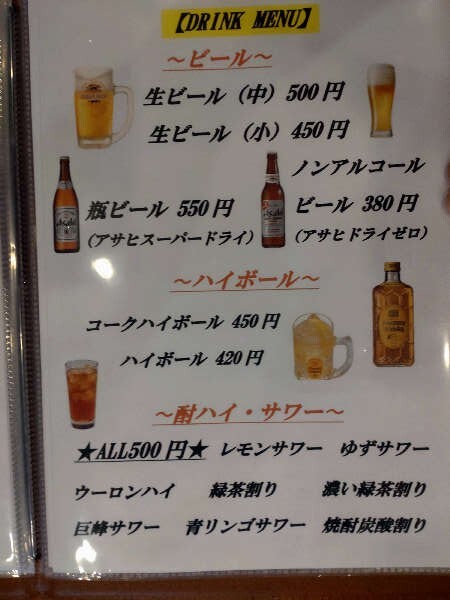 【DRINK MENU】
~ビール~
生ビール (中) 500円
生ビール (小) 450円
ノンアルコール
瓶ビール 550円 ビール 380円
(アサヒスーパードライ) (アサヒドライゼロ)
~ハイボール~
コークハイボール 450円
ハイボール 420円
~酎ハイ・サワー~
★ALL500円★ レモンサワー ゆずサワー
ウーロンハイ 緑茶割り 濃い緑茶割り
巨峰サワー 青リンゴサワー 焼酎炭酸割り